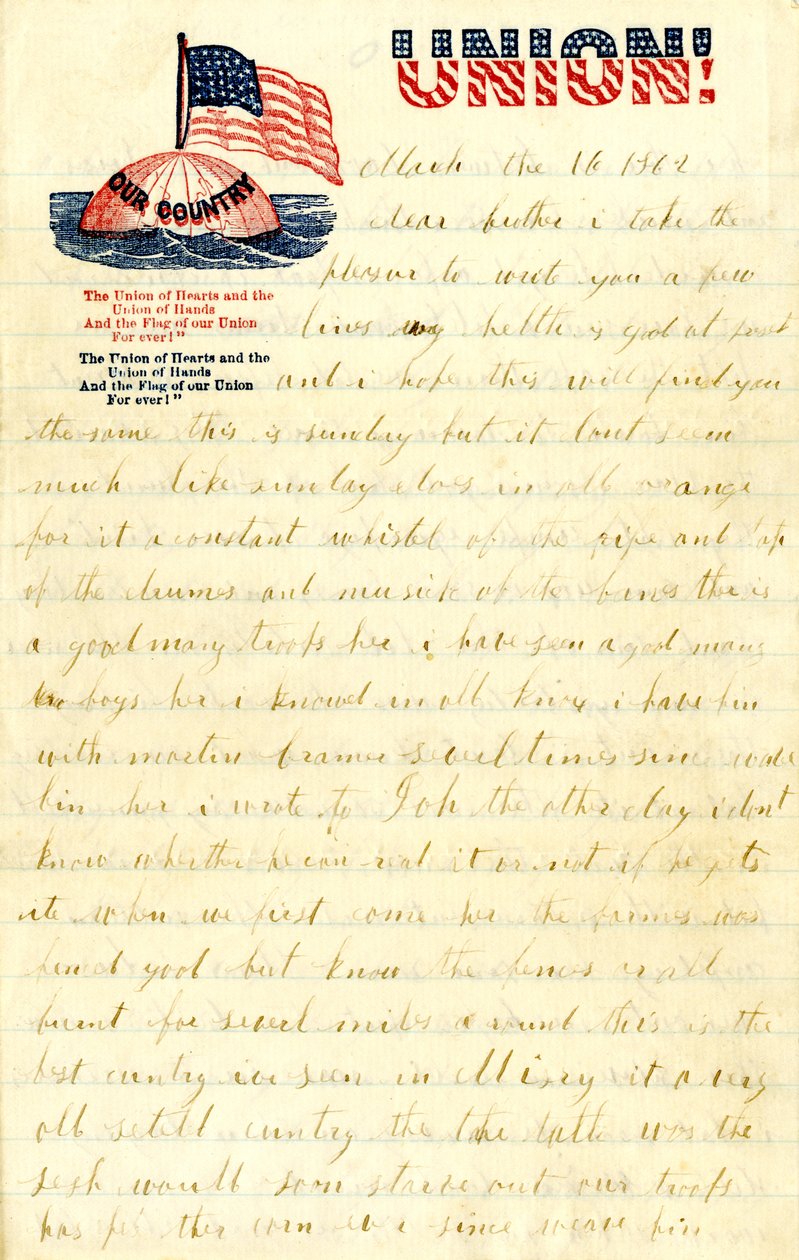 UNION!
OUR COUNTRY
The Union of Hearts and the
Union of Hands
And the Flag of our Union
For ever!"
The Union of Hearts and the
Union of Hands
And the Flag of our Union
For ever!"
March the 16 1862
dear brother i take the
pleasur to write you a few
lines my helth is good at
and i hope this will find you
the same this is sunday but it dont seem
much like sunday does in old orange
for it a constant whistel of the fife and tap
of the drumes and musick of the ther is
a good many troops her i have seen a good many
boys her i knowed in old knox i have bin
with martin bramer severl times since
bin her i wrote to Joh the other day i dont
know whether he can read it or not if he gets
it when we first come her the farmes was
fenced good but know the fences or all
burnt for severl miles around this is the
best cuntry ive seen in Misry it a very
old seteld cuntry the talk was the
sesh would soon starve out our troops
has fed ther corn since weave bin